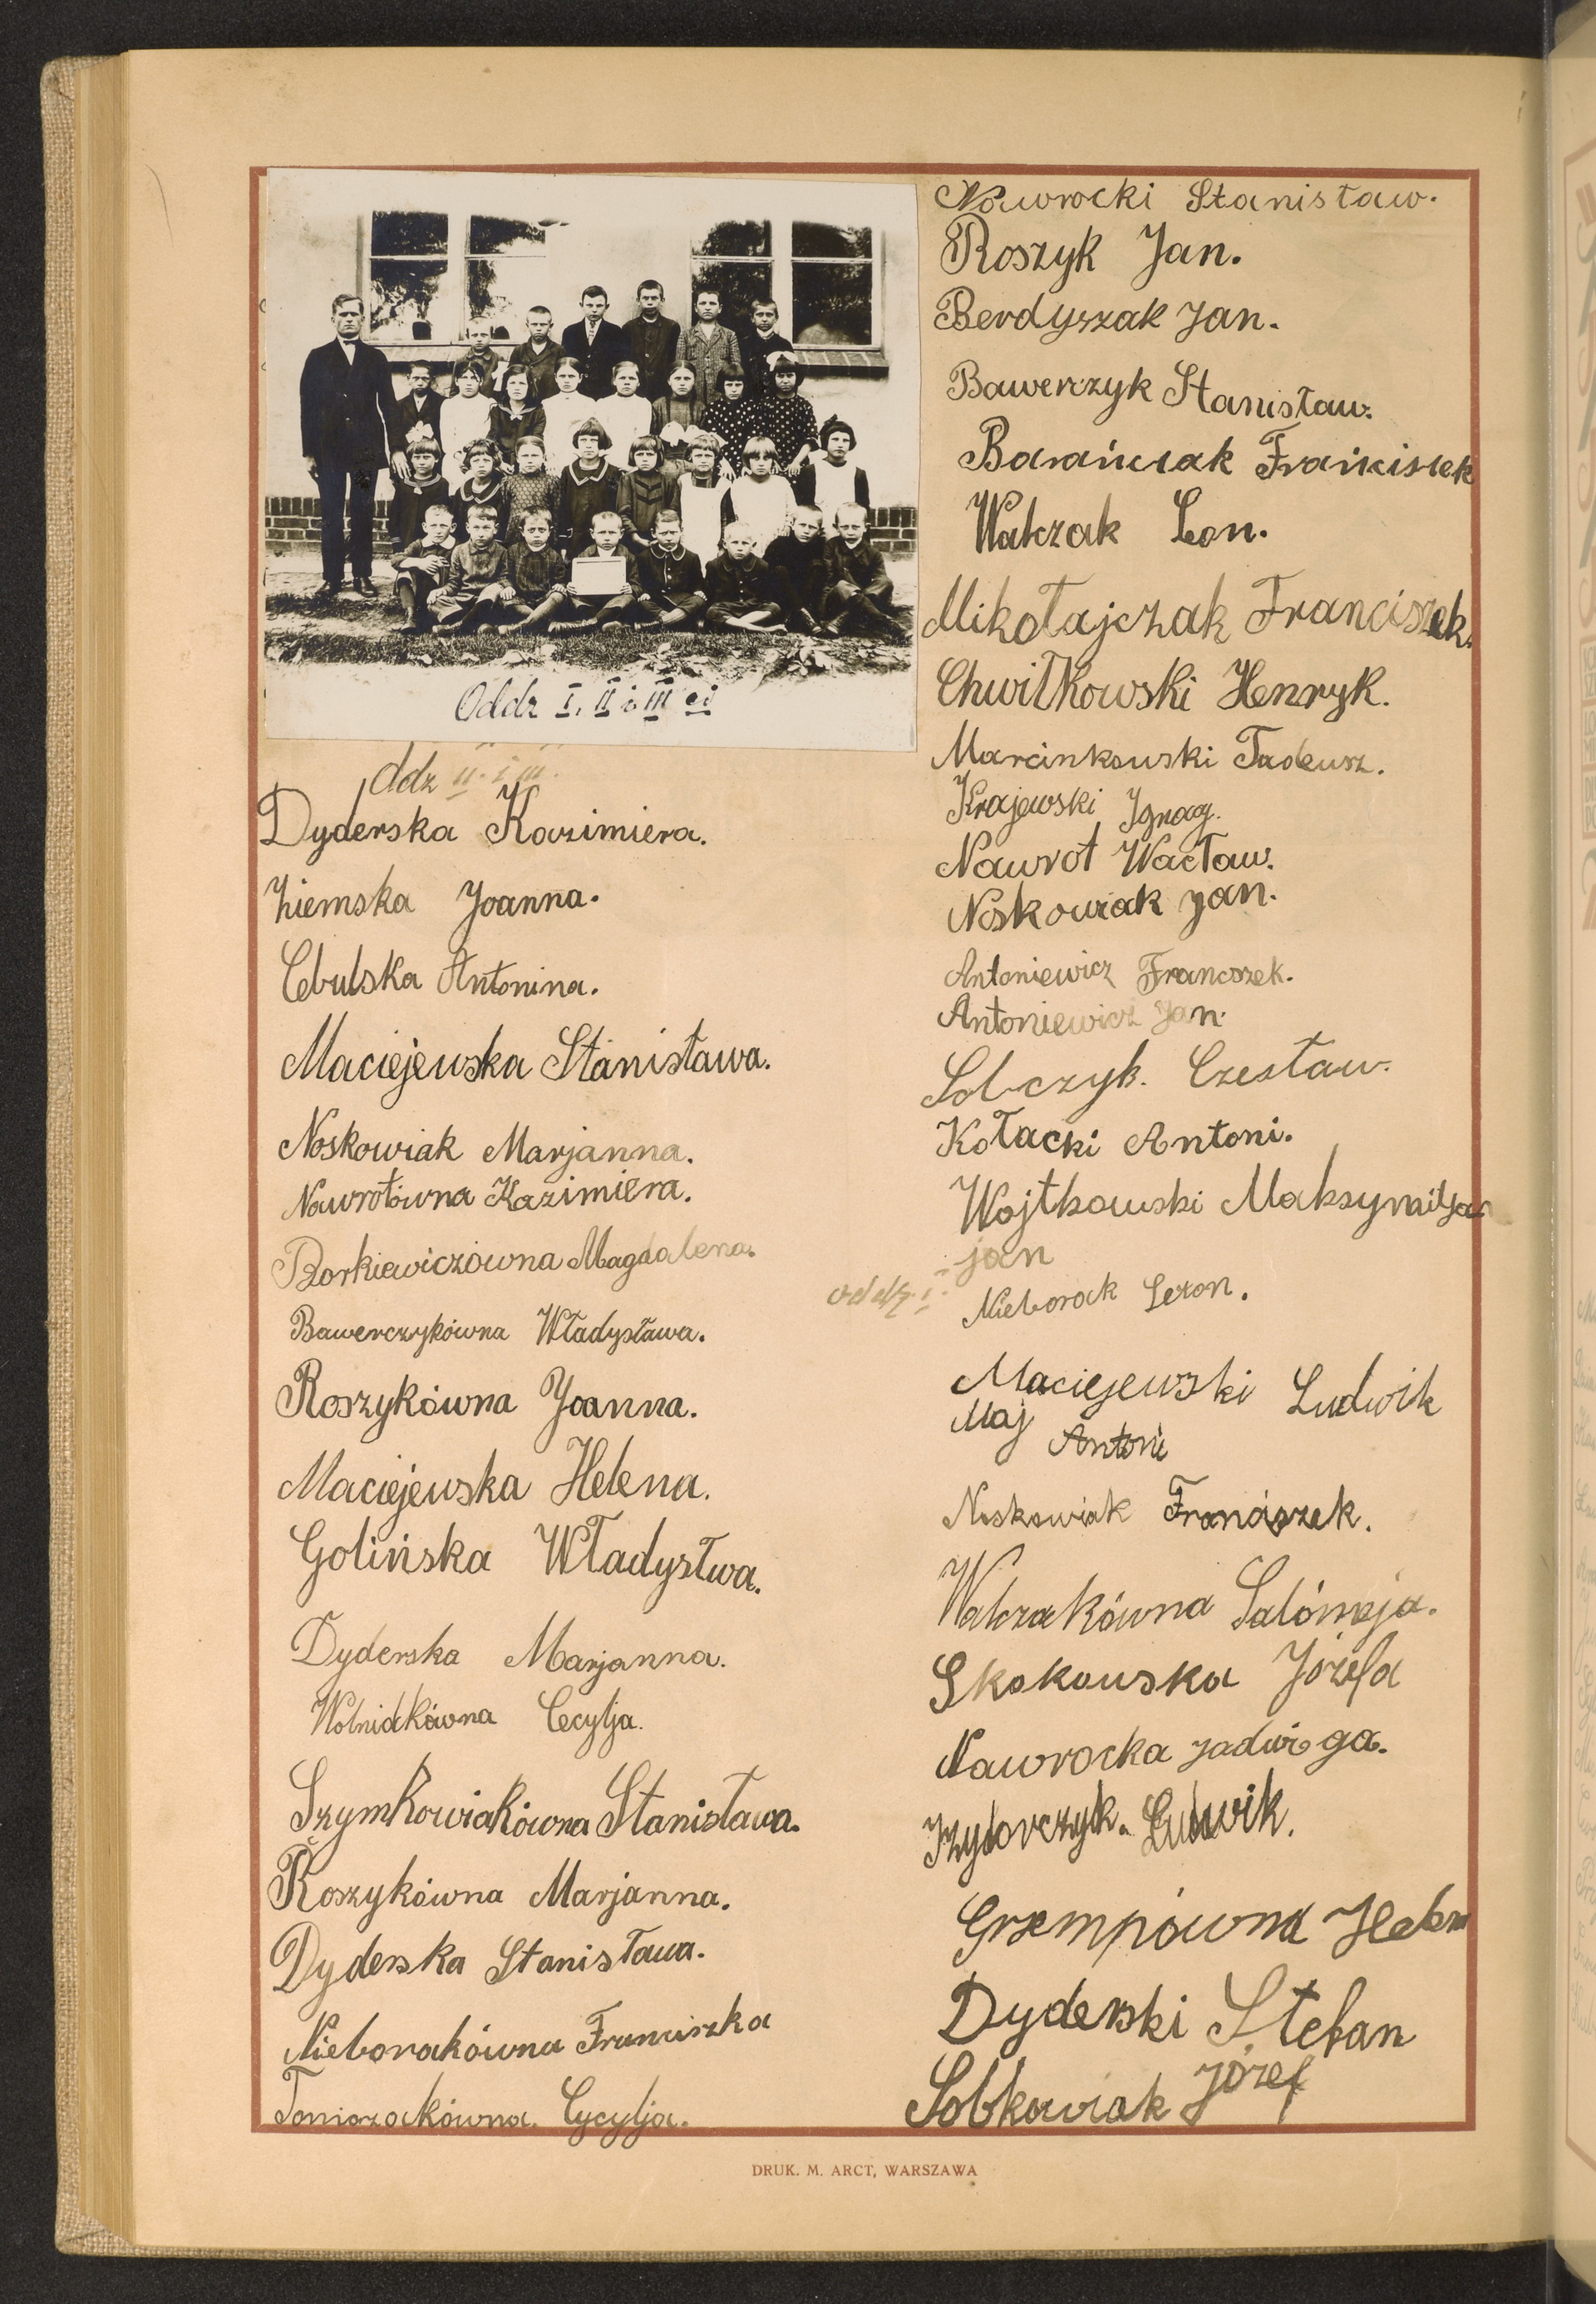 Oddz I, II i III ci
ddz II. i III.
Dyderska Kazimiera.
Ziemska Joanna.
Cebulska Antonina.
Maciejewska Stanisława.
Noskowiak Marjanna.
Nawrotówna Kazimiera.
Borkiewiczówna Magdalena.
Bawerczykówna Władysława.
Roszykówna Joanna.
Maciejewska Helena.
Golińska Władystwa.
Dyderska Marjanna.
Wolniakówna Cecylja.
Szymkowiakówna Stanisława.
Roszykówna Marjanna.
Dyderska Stanisława.
Nieborakówna Franciszka
Tomiazakówna. Cycylja.
Nawrocki Stanisław.
Roszyk Jan.
Berdyszak Jan.
Bawerczyk Stanisław.
Barańczak Frańciszek
Walczak Leon.
Mikołajczak Franciszek.
Chwiłkowski Henryk.
Marcinkowski Tadeusz.
Krajewski Ignacy.
Nawrot Wacław.
Noskowiak Jan.
Antoniewicz Francszek.
Antoniewicz Jan.
Sobczyk. Czesław.
Kołacki Antoni.
Wojtkowski Maksymilja
jan
oddz. I. Nieborak Leon.
Maciejewski Ludwik
Maj Antoni
Noskowiak Franciszek.
Walczakówna Salómeja.
Skokowska Józefa
Nawrocka Jadwiga.
Izydorczyk. Ludwik.
Grzempówna Helena
Dyderski Stefan
Sobkowiak Józef
DRUK. M. ARCT, WARSZAWA